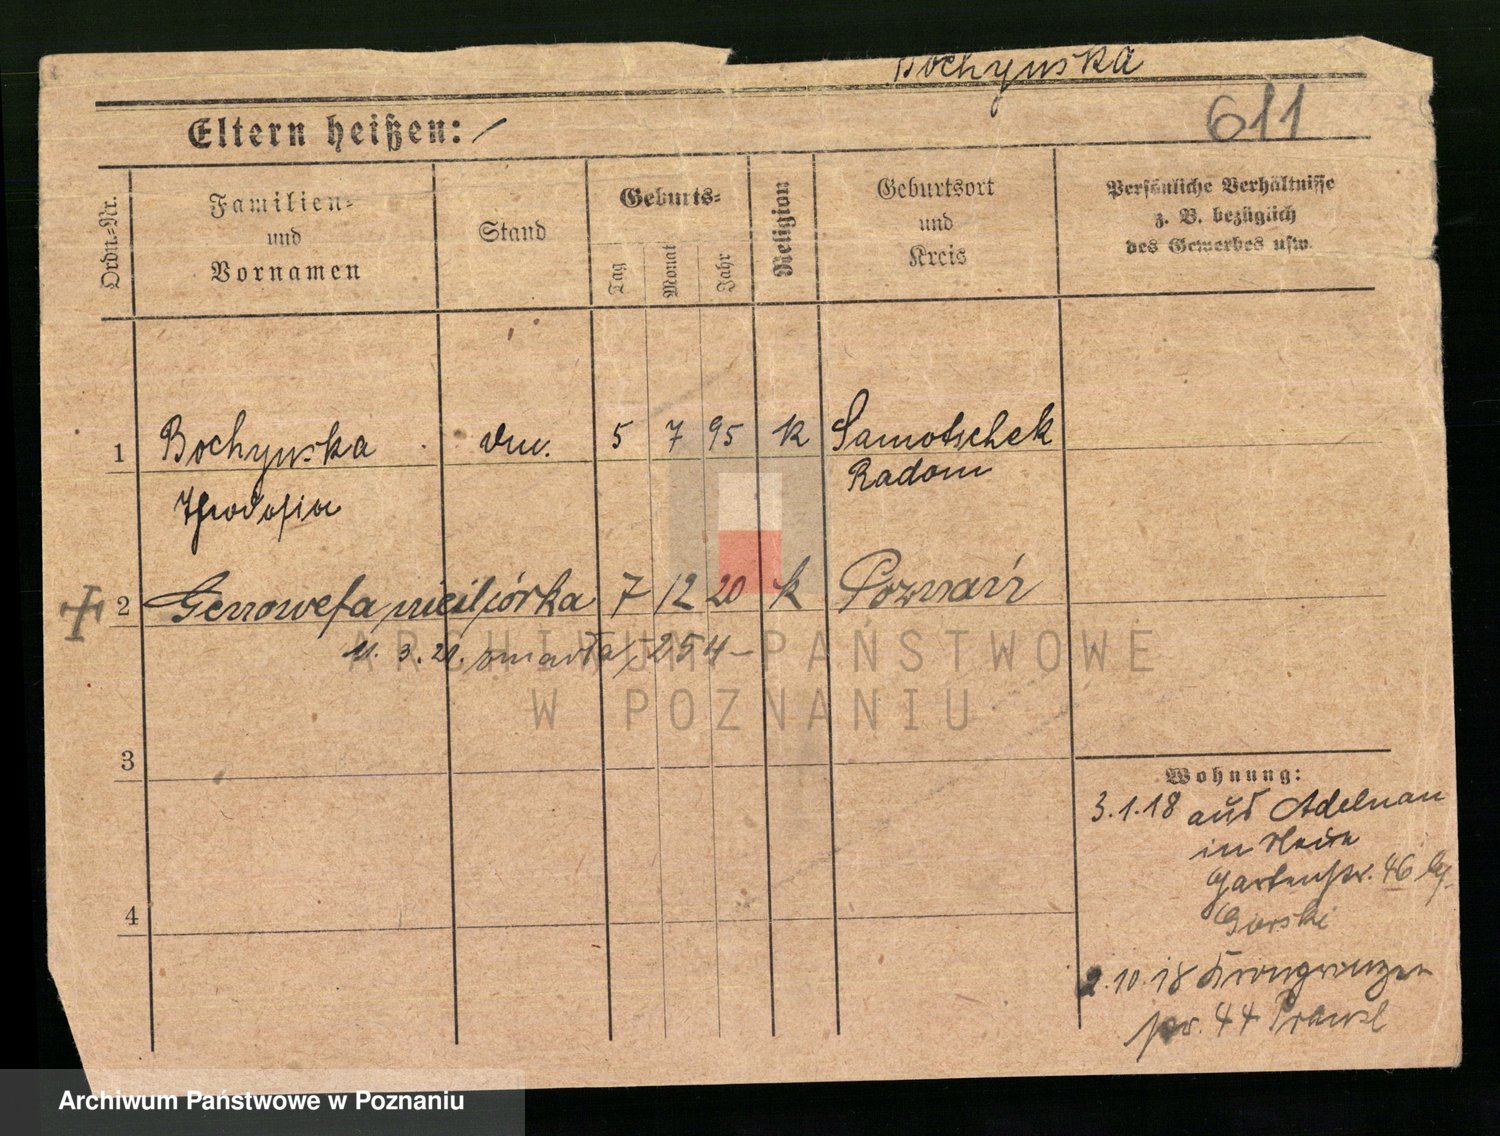 Bochynska
Eltern heißen:
611
Ordn.-Nr.
Familien-
und
Vornamen
Stand
Geburts-
Tag
Monat
Jahr
Religion
Geburtsort
und
Kreis
Persönliche Verhältnisse
z. B. bezüglich
des Gewerbes usw.
1 Bochynska 5 7 95 K Samotschek
Theodosia Radom
2 Genowefa córka 7 12 20 k Poznań
11. 3. 21. zmarła 254
ARCHIWUM PAŃSTWOWE
W POZNANIU
3
4
Wohnung:
3.1.18 aus Adelnau
in
Gartenstr. 46
Gorski
2.10.18 Kronprinzen
str. 44
Archiwum Państwowe w Poznaniu